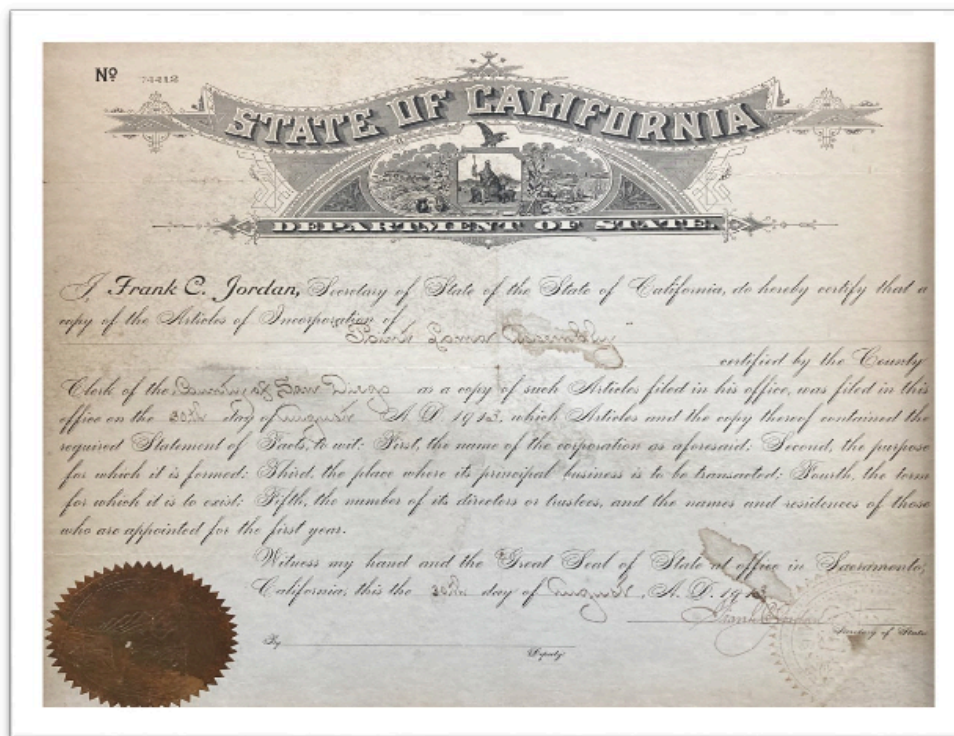 Nº 74412
STATE OF CALIFORNIA
DEPARTMENT OF STATE.
I, Frank C. Jordan, Secretary of State of the State of California, do hereby certify that a
copy of the Articles of Incorporation of
"Point Loma Assembly"
certified by the County
Clerk of the County of San Diego as a copy of such Articles filed in his office, was filed in this
office on the 30th day of August A.D. 1913, which Articles and the copy thereof contained the
required Statement of Facts, to wit: First, the name of the corporation as aforesaid; Second, the purpose
for which it is formed; Third, the place where its principal business is to be transacted; Fourth, the term
for which it is to exist; Fifth, the number of its directors or trustees, and the names and residences of those
who are appointed for the first year.
Witness my hand and the Great Seal of State at office in Sacramento,
California, this the 30th day of August, A.D. 1913
Frank C. Jordan
Secretary of State
By
Deputy.